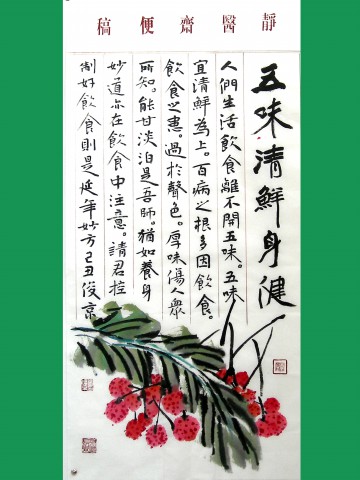 靜醫齋便稿
五味清鮮身健
人們生活飲食離不開五味。五味
宜清鮮為上。百病之根多因飲食。
飲食之患。過於聲色。厚味傷人眾
所知。能甘淡泊是吾師。猶如養身
妙道亦在飲食中注意。請君控
制好飲食則是延年妙方己丑俊京